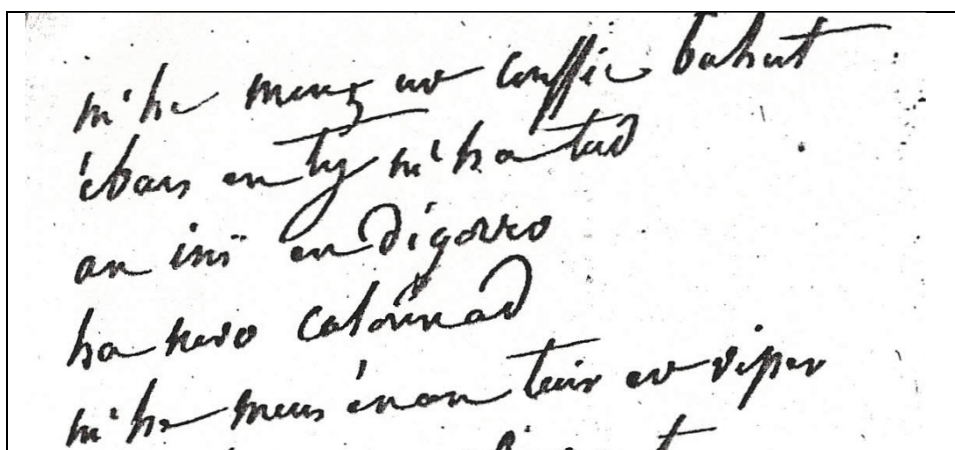 m'he meus ur couffic bahut
ébars en ty m'ha tad
an ini en digorro
ha navo calounad
m'he meus énan teir ar viper